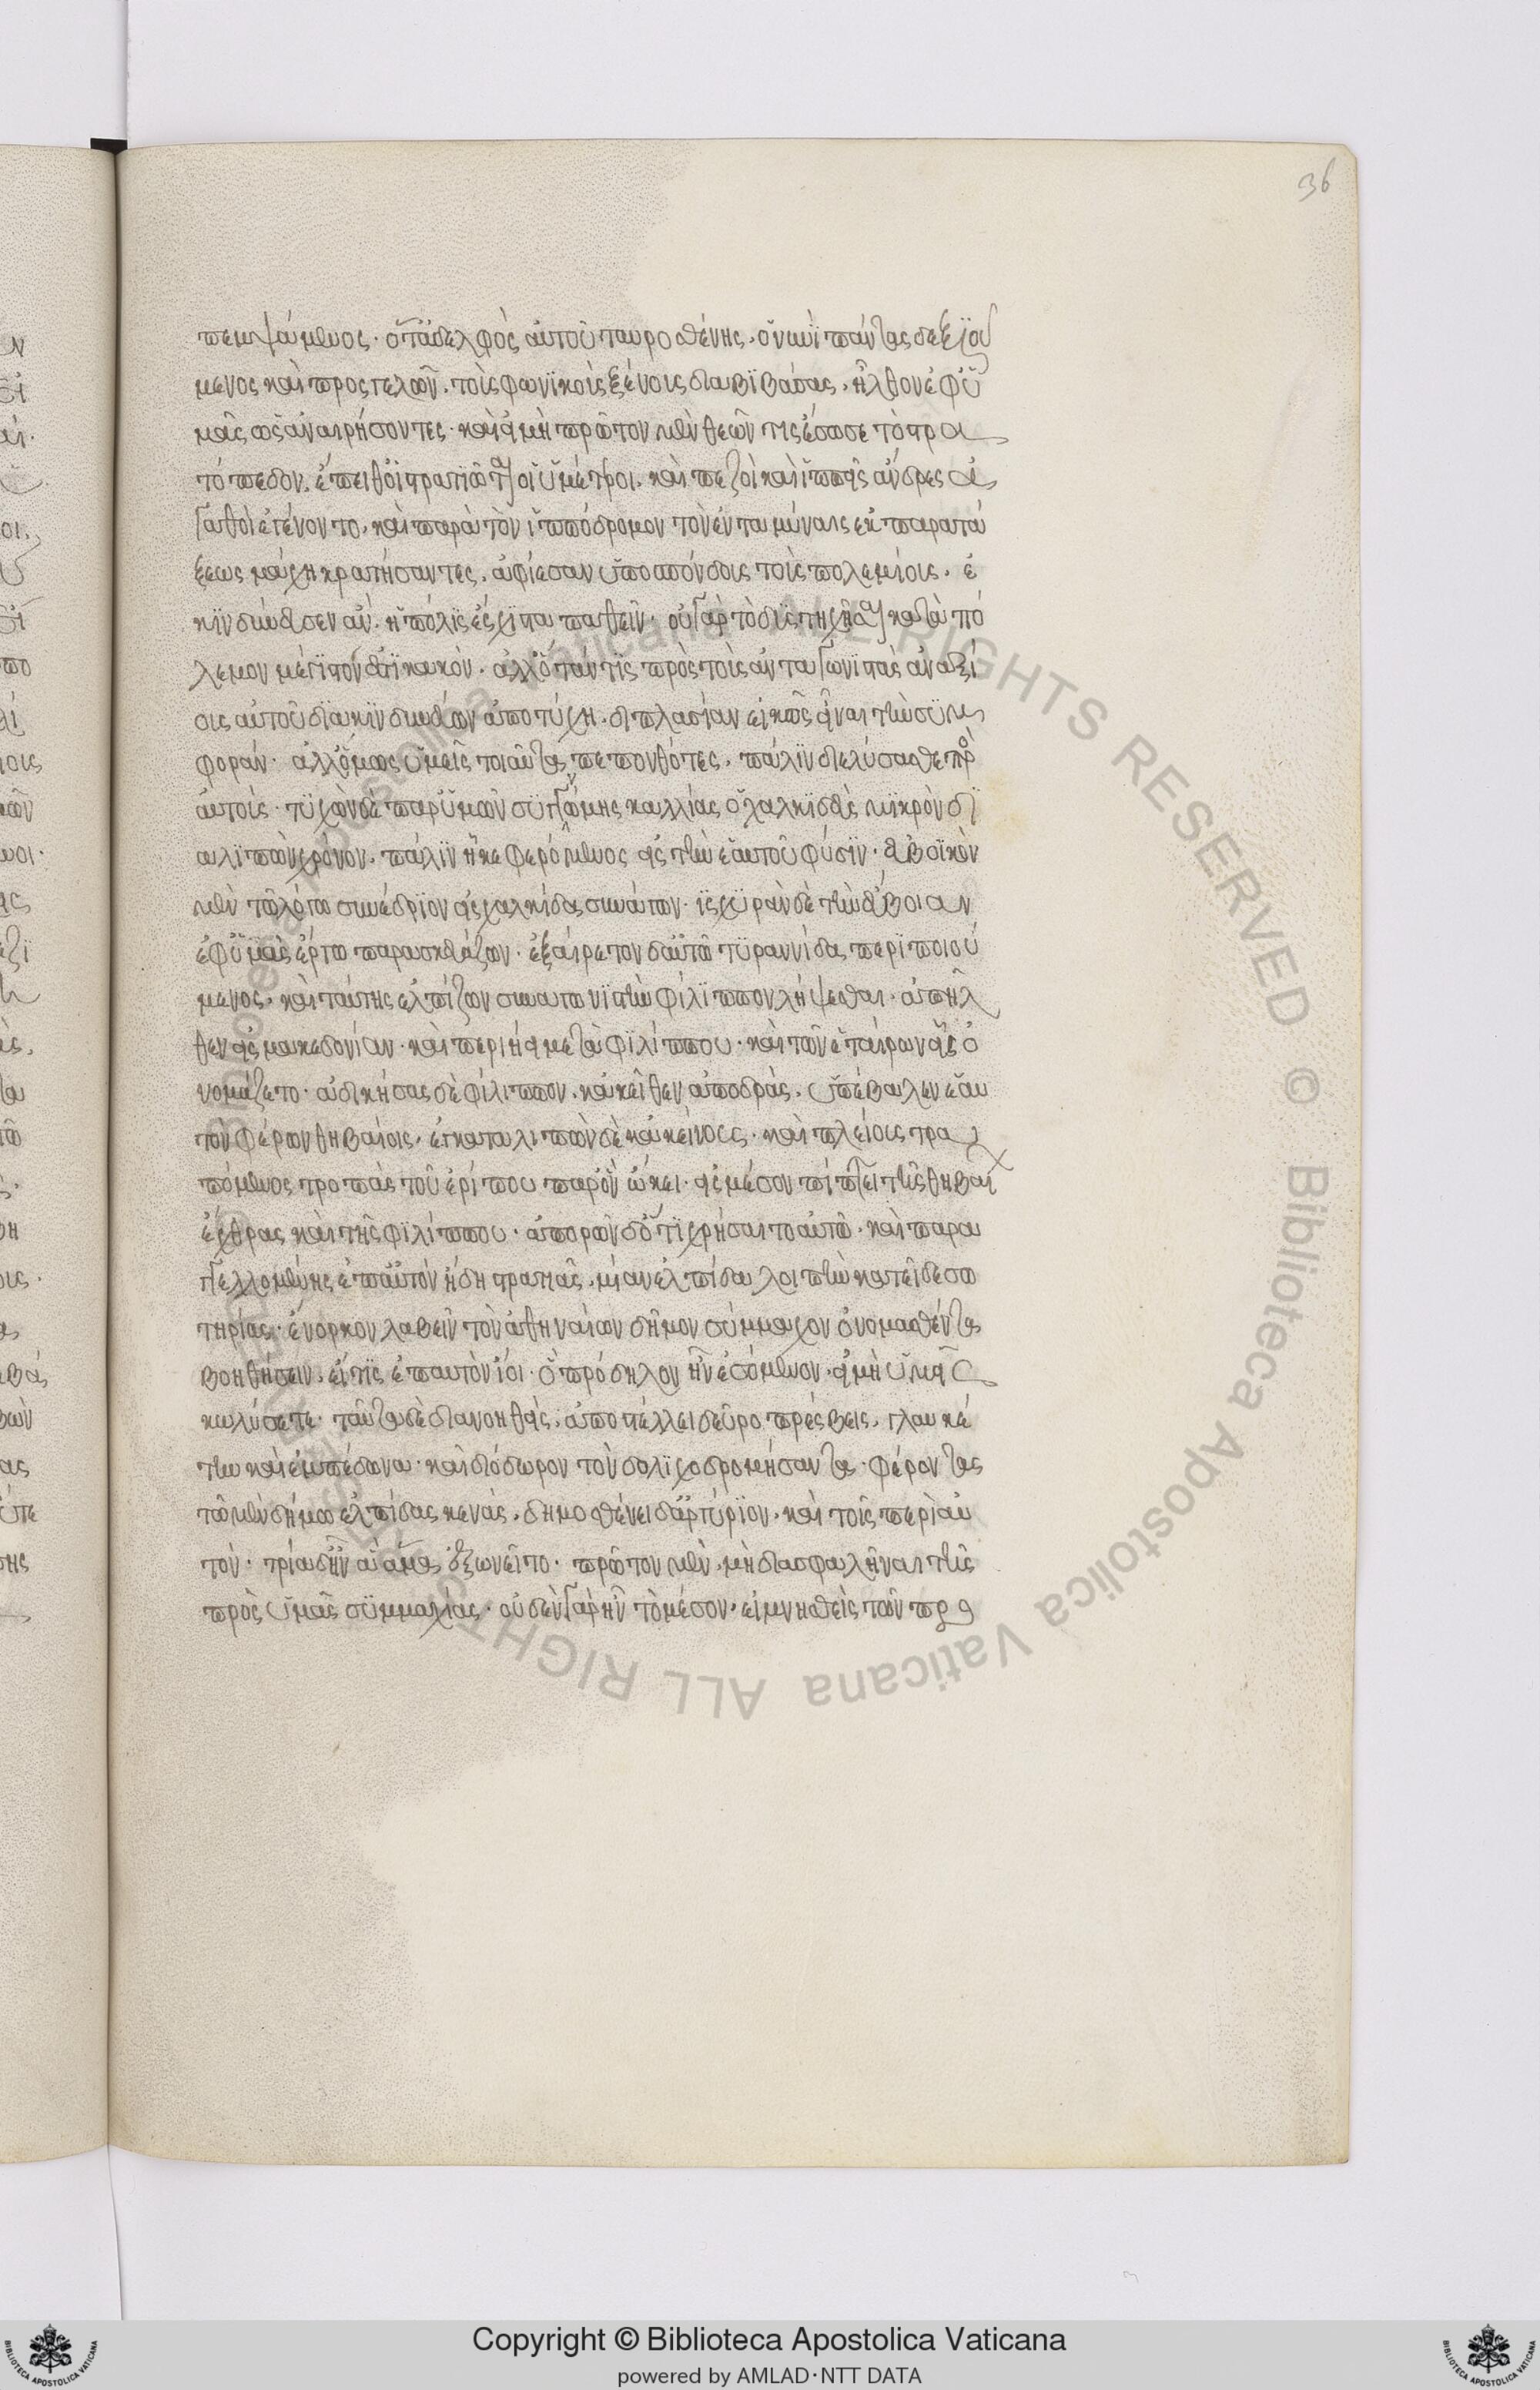 36
πεμψάμενος· ὅτ' ἀδελφὸς αὐτοῦ ταυροσθένης, ὁ νυνὶ πάντας δεξιού
μενος καὶ προσγελῶν, τοὺς φωκικοὺς ξένους διαβιβάσας, ἦλθον ἐφ' ὑ
μᾶς ὡς ἀναιρήσοντες· καὶ εἰ μὴ πρῶτον μὲν θεῶν τις ἔσωσε τὸ στρα
τόπεδον, ἔπειθ' οἱ στρατιῶται οἱ ὑμέτεροι, καὶ πεζοὶ καὶ ἱππεῖς ἄνδρες ἀ
γαθοὶ ἐγένοντο, καὶ παρὰ τὸν ἱππόδρομον τὸν ἐν ταμύναις ἐκ παρατά
ξεως μάχῃ κρατήσαντες, ἀφίεσαν ὑποσπόνδους τοὺς πολεμίους, ἐ
κινδύνευσεν ἂν ἡ πόλις αἴσχιστα παθεῖν· οὐ γὰρ τὸ δυστυχῆσαι κατὰ πό
λεμον μέγιστόν ἐστι κακόν· ἀλλ' ὅταν τις πρὸς τοὺς ἀνταγωνιστὰς ἀναξί
ους αὑτοῦ διακινδυνεύων ἀποτύχῃ, διπλασίαν εἰκὸς εἶναι τὴν συμ
φοράν· ἀλλ' ὅμως ὑμεῖς τοιαῦτα πεπονθότες, πάλιν διελύσασθε πρὸς
αὐτούς· τυχὼν δὲ παρ' ὑμῶν συγγνώμης καλλίας ὁ χαλκιδεὺς μικρὸν δι
αλιπὼν χρόνον, πάλιν ἧκε φερόμενος εἰς τὴν ἑαυτοῦ φύσιν· εὐβοϊκὸν
μὲν τῷ λόγῳ συνέδριον εἰς χαλκίδα συνάγων· ἰσχυρὰν δὲ τὴν εὔβοιαν
ἐφ' ὑμᾶς ἔργῳ παρασκευάζων· ἐξαίρετον δ' αὑτῷ τυραννίδα περιποιού
μενος, καὶ ταύτης ἐλπίζων συναγωνιστὴν φίλιππον λήψεσθαι, ἀπῆλ
θεν εἰς μακεδονίαν· καὶ περιῄει μετὰ φιλίππου· καὶ τῶν ἑταίρων εἷς ὠ
νομάζετο· ἀδικήσας δὲ φίλιππον, κἀκεῖθεν ἀποδράς, ὑπέβαλεν ἑαυ
τὸν φέρων θηβαίοις, ἐγκαταλιπὼν δὲ κἀκείνους, καὶ πλείους τρα
πόμενος τροπὰς τοῦ εὐρίπου παρ' ὃν ᾤκει· εἰς μέσον πίπτει τῆς θηβαί
ἔχθρας καὶ τῆς φιλίππου· ἀπορῶν δ' ὅ τι χρήσαιτο αὑτῷ· καὶ παρα
γγελλομένης ἐπ' αὐτὸν ἤδη στρατιᾶς, μίαν ἐλπίδα λοιπὴν κατεῖδε σω
τηρίας· ἔνορκον λαβεῖν τὸν ἀθηναίων δῆμον σύμμαχον ὀνομασθέντα
βοηθήσειν, εἴ τις ἐπ' αὐτὸν ἴοι· ὃ πρόδηλον ἦν ἐσόμενον, εἰ μὴ ὑμεῖς
κωλύσετε· ταῦτα δὲ διανοηθείς, ἀποστέλλει δεῦρο πρέσβεις, γλαυκέ
την καὶ ἐμπέδωνα· καὶ διόδωρον τὸν δολιχοδρομήσαντα· φέροντας
τῷ μὲν δήμῳ ἐλπίδας κενάς, δημοσθένει δ' ἀργύριον, καὶ τοῖς περὶ αὐ
τόν· τρία δ' ἦν ἃ ἅμα ἐξωνεῖτο· πρῶτον μὲν, μὴ διασφαλῆναι τῆς
πρὸς ὑμᾶς συμμαχίας· οὐδὲν γὰρ ἦν τὸ μέσον, εἰ μνησθεὶς τῶν προ
Copyright © Biblioteca Apostolica Vaticana
powered by AMLAD·NTT DATA